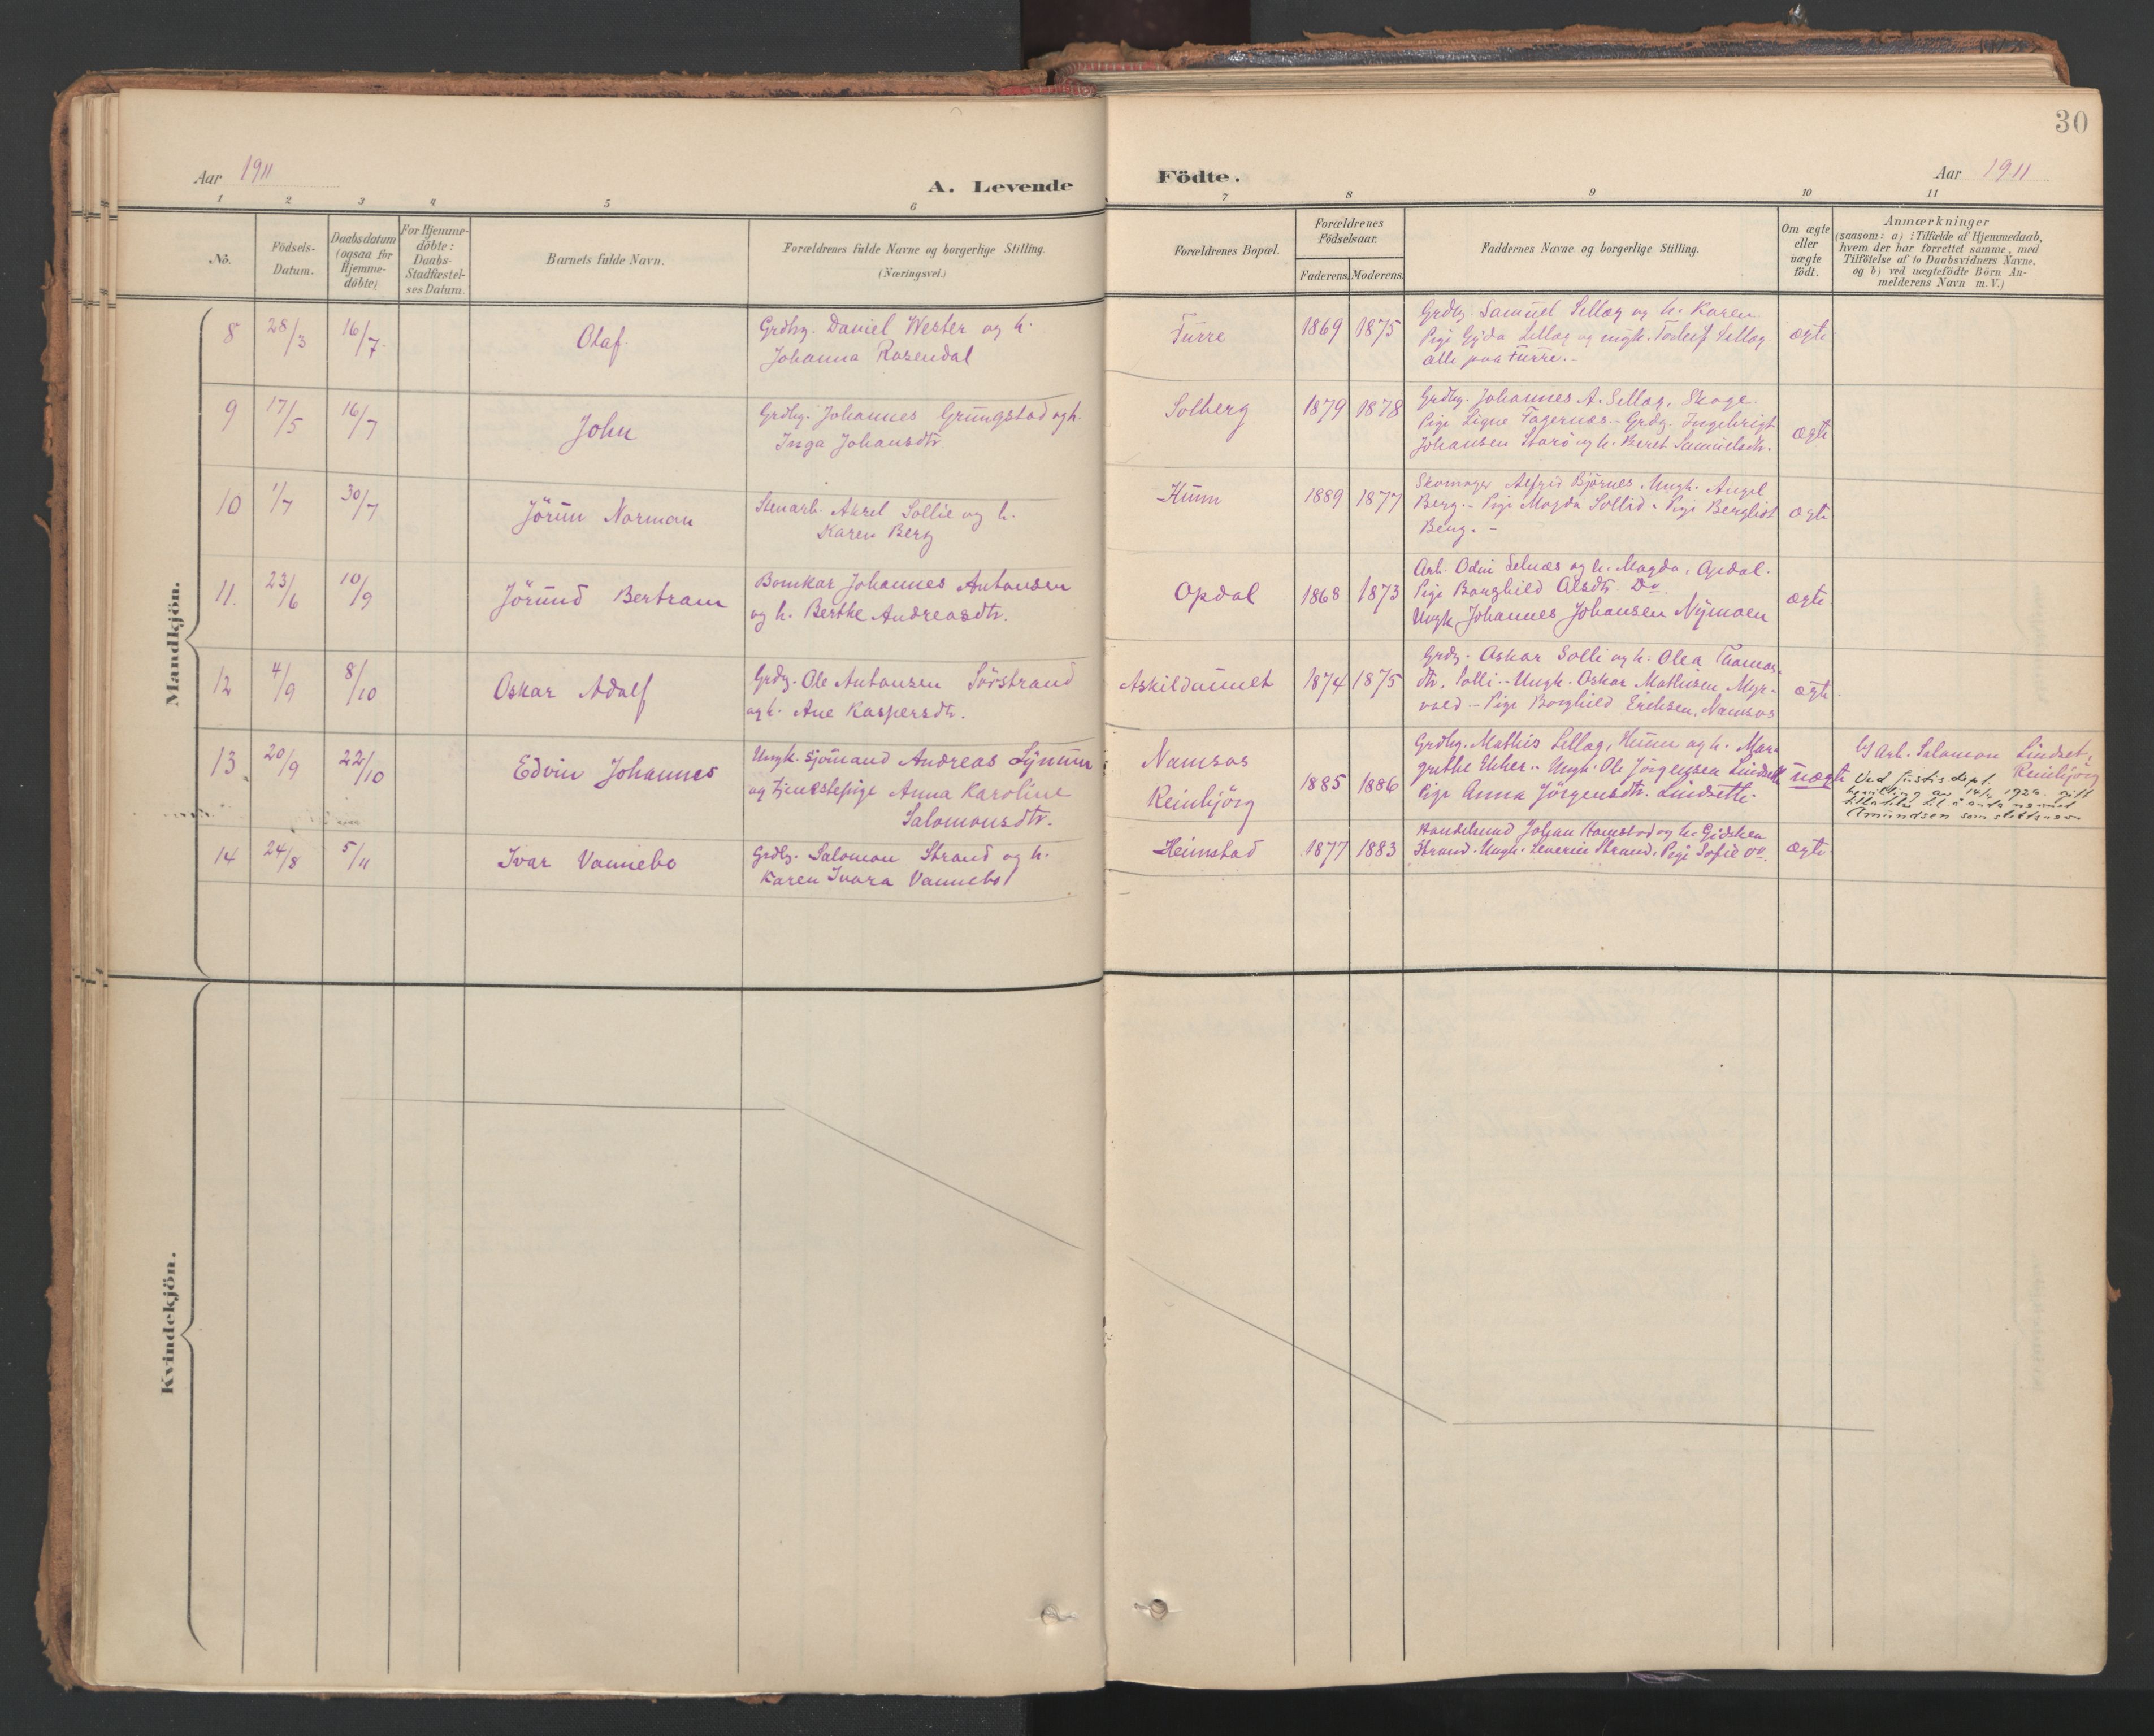 30
Aar 1911
A. Levende
Födte.
Aar 1911
1 2 3 4 5 6 7 8 9 10 11
No.
Födsels-
Datum.
Daabsdatum
(ogsaa for
Hjemme-
döbte)
For Hjemme-
döbte:
Daabs-
Stadfæstel-
ses Datum.
Barnets fulde Navn.
Forældrenes fulde Navne og borgerlige Stilling
(Næringsvei.)
Forældrenes Bopæl.
Forældrenes
Födselsaar.
Faderens. Moderens.
Faddernes Navne og borgerlige Stilling.
Om ægte
eller
uægte
födt.
Anmærkninger
(saasom: a) : Tilfælde af Hjemmedaab,
hvem der har forrettet samme, med
Tilföielse af to Daabsvidners Navne.
og b) ved uægtefödte Börn An-
melderens Navn m. V.)
Mandkjön.
8 28/3 16/7 Olaf
Grdbr. Daniel Wester og h.
Johanna Rosendal
Furre 1869 1875
Grdbr. Samuel Sellæg og h. Karen.
Pige Gyda Sellæg og ungk. Torleif Sellæg
alle paa Furre.-
ægte
9 17/5 16/7 John
Grdbr. Johannes Grungstad og h.
Inga Johansdtr.
Solberg 1879 1878
Grdbr. Johannes A. Sellæg, Skage.
Pige Signe Fagernæs.- Grdbr. Ingebrigt
Johansen Starö og h. Beret Samuelsdtr.
ægte
10 1/7 30/7 Jörun Norman
Stenarb. Aksel Sollie og h.
Karen Berg
Humm 1889 1877
Skomager Björnes. Ungk. Angel
Berg.- Pige Magda Sollid. Pige Bergliot
Berg.-
ægte
11. 23/6 10/9 Jörund Bertram
Bomkar Johannes Antonsen
og h. Berthe Andreasdtr.
Opdal 1868 1873
Arb. Odin Selnæs og h. Magda, Opdal.
Pige Borghild Olsdtr. Do.
Ungk. Johannes Johansen Nymoen
ægte
12 4/9 8/10 Oskar Adolf
Grdbr. Ole Antonsen Sörstrand
og h. Ane Kaspersdtr.
Askildaunet 1874 1875
Grdbr. Oskar Solli og h. Olea Thomas-
dtr. Solli.- Ungk. Oskar Mathisen, Myr-
vold.- Pige Borghild Eriksen, Namsos
ægte.
13 20/9 22/10 Edvin Johannes
Ungk. Sjömand Andreas Lynum
og tjenestepige Anna Karoline
Salomonsdtr.
Namsos
Reinbjörg
1885 1886
Grdbr. Mathis Sellæg, Humm og h. Mar-
grethe Ekker.. Ungk. Ole Jörgensen Lindsett
Pige Anna Jörgensdtr. Lindsetti.
uægte
b/ Arb. Salomon Lindset,
Reinbjörg
Ved Justisdept.
bevilling av 14/4 1926 gitt
tillatelse til å anta navnet
Amundsen som slektsnavn
14 24/8 5/11 Ivar Vannebo
Grdbr. Salomon Strand og h.
Karen Ivara Vannebo
Heimstad 1877 1883
Handelsmd Johan Homstad og h. Gidsken
Strand. Ungk. Severin Strand, Pige Sofie do.
ægte.
Kvindekjön.